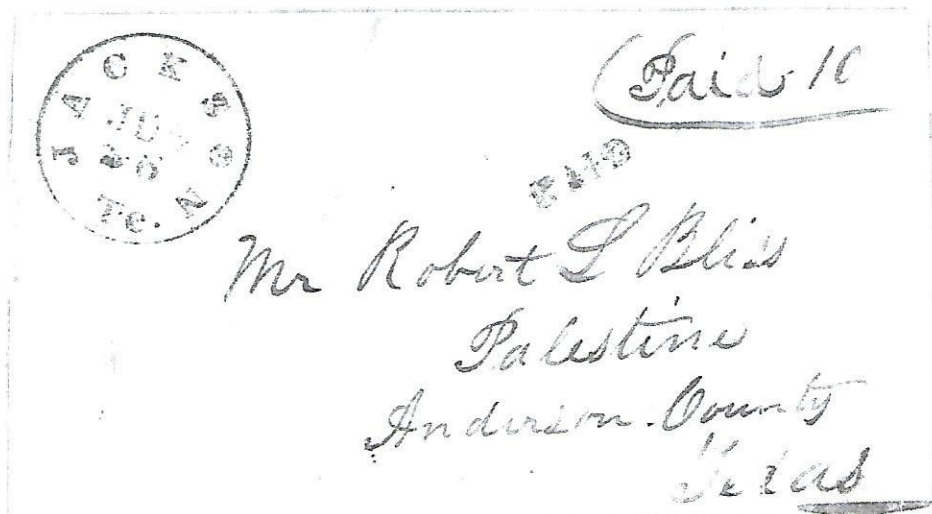 JACKSON
Te.
Paid 10
PAID
Mr Robert L Bliss
Palestine
Anderson County
Texas